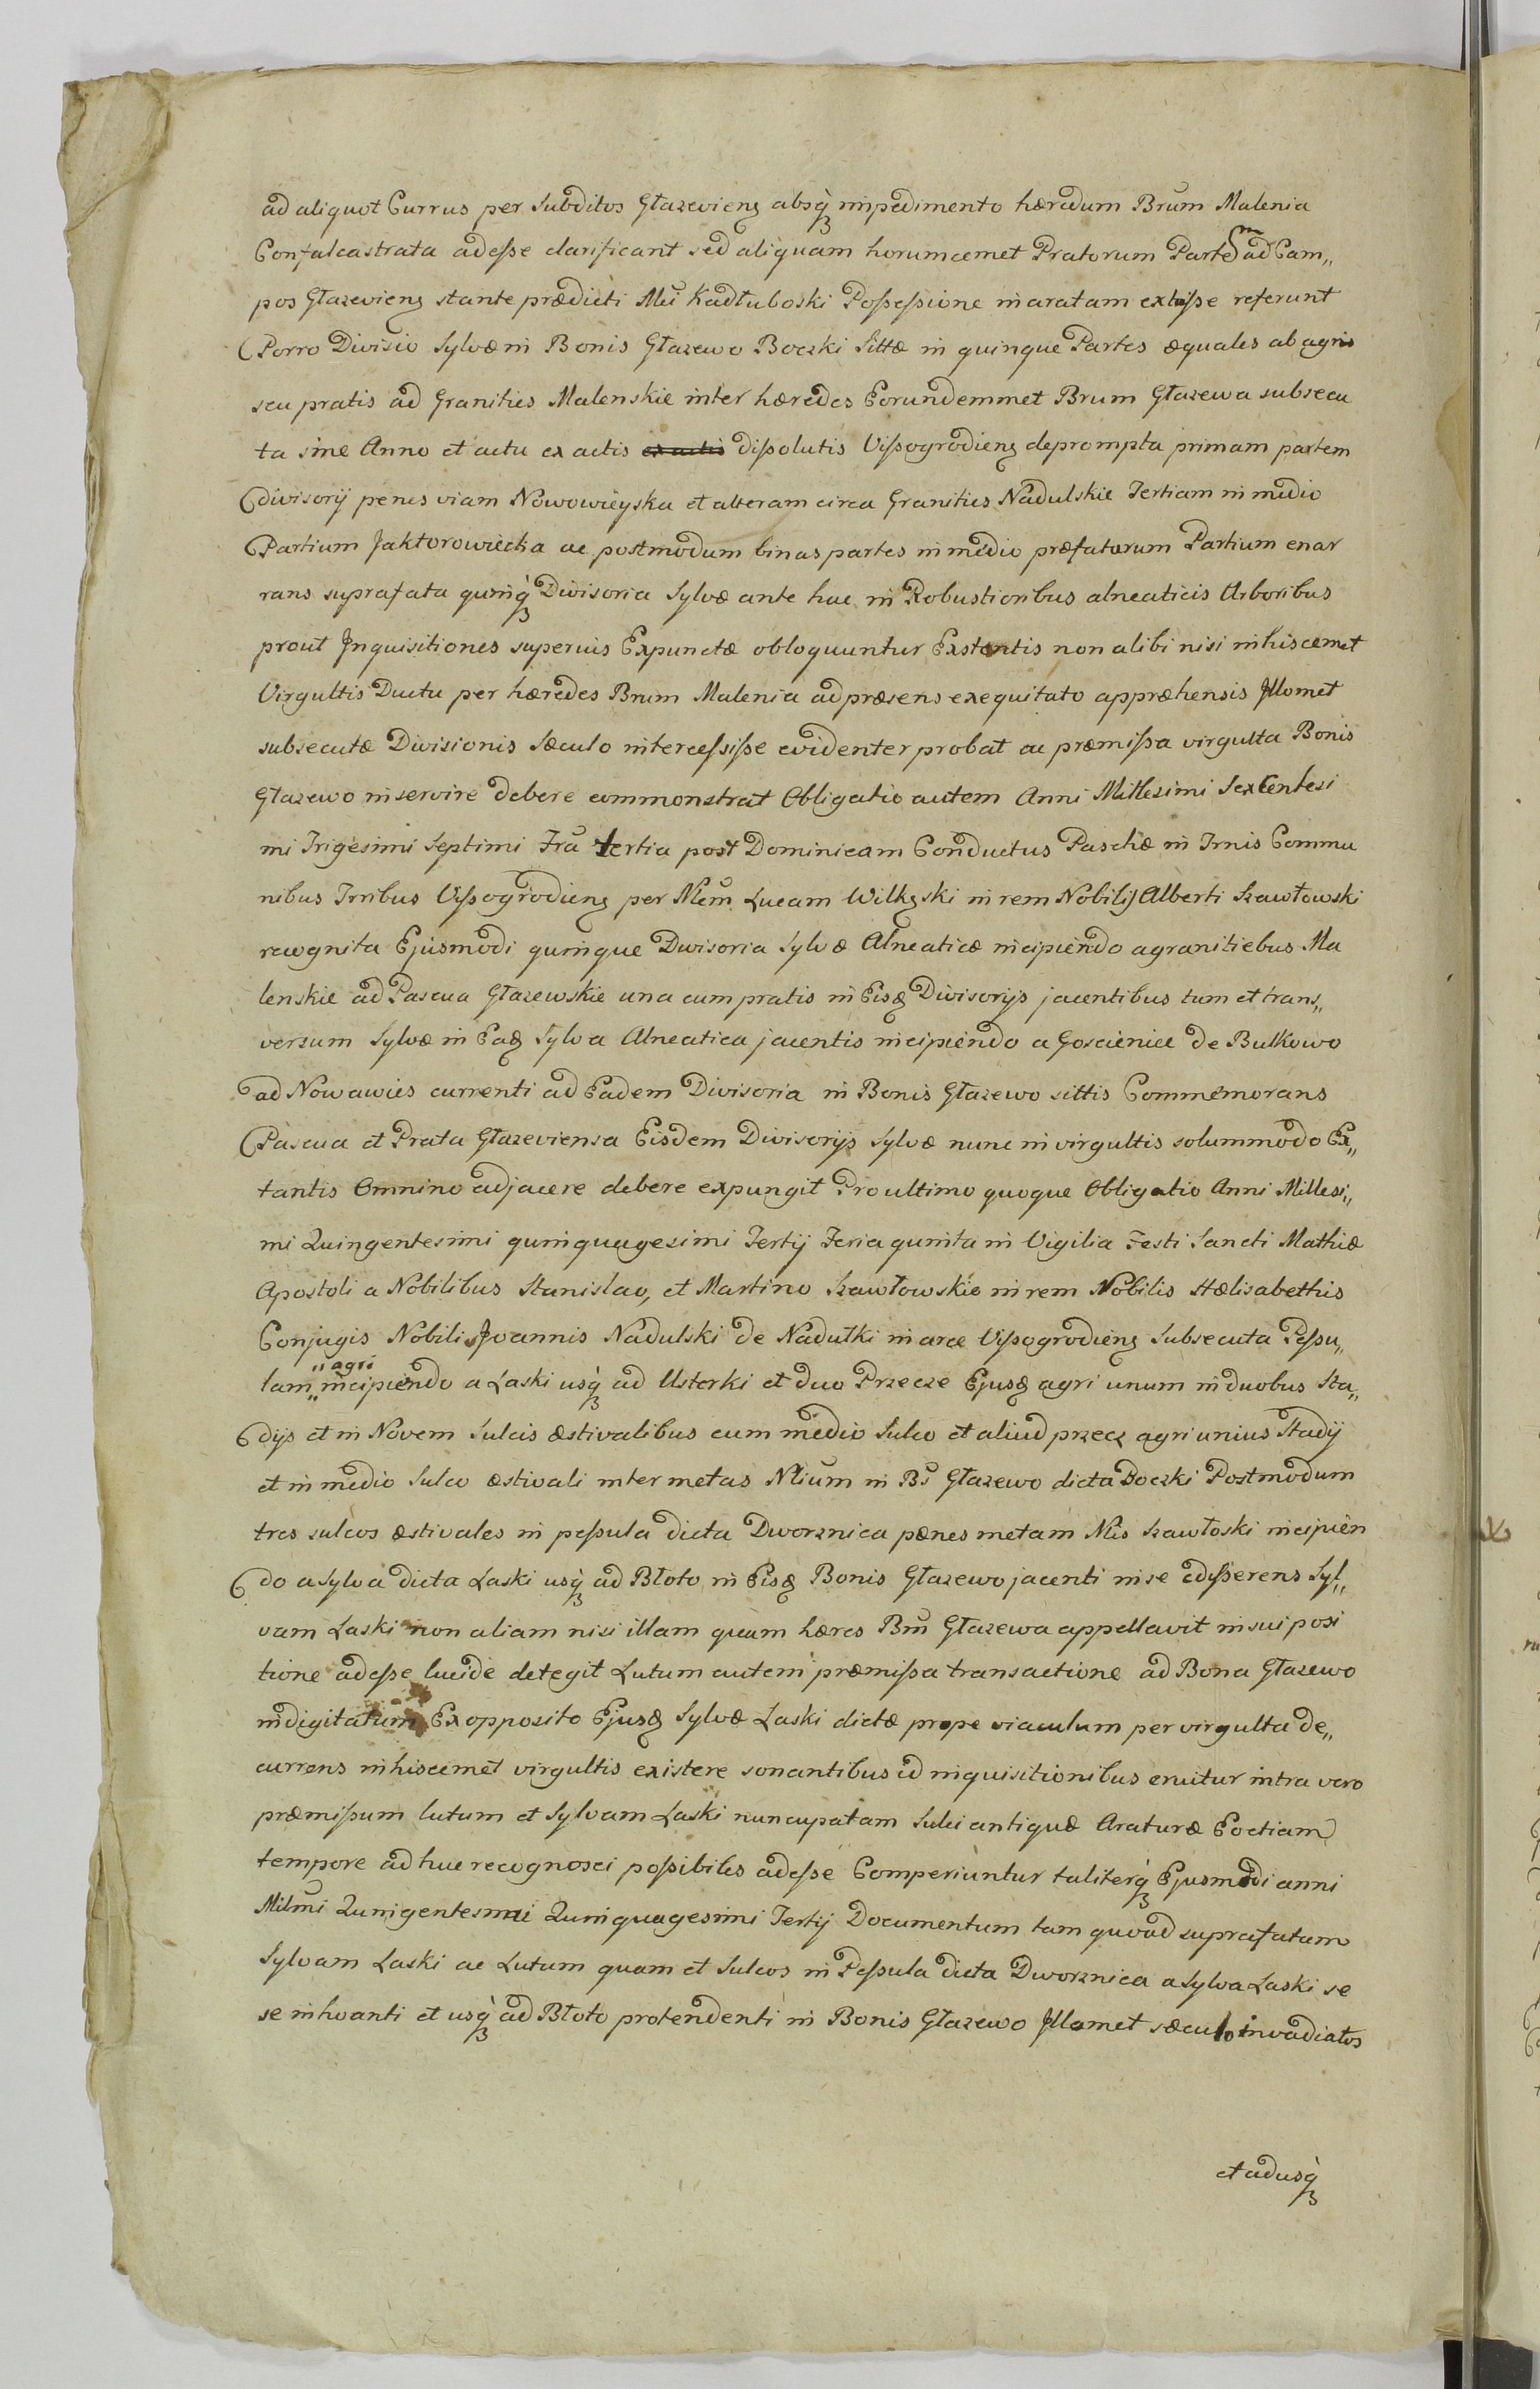 ad aliquot Currus per Subditos Głazevieng absq̀ impedimento hæredum Brum Malenia
Confalcastrata adesse clarificant sed aliquam horumcemet Pratorum Partem ad Cam„
pos Głazevieng stante prædicti Mci Kadłuboski Possessione in aratam extitisse referunt
Porro Divisio Sylvæ in Bonis Głazewo Boczki Sittæ in quinque Partes æquales ab agris
seu pratis ad Granities Malenskie inter hæredes Eorundemmet Brum Głazewa subsecu
ta sine Anno et actu ex actis ex actis dissolutis Vissogrodieng deprompta primam partem
divisorij penes viam Nowowieyska et alteram circa Granities Nadulskie Tertiam in medio
Partium Jaktorowiecka ac postmodum binas partes in medio præfatarum Partium enar
rans suprafata quinq̀ Divisoria Sylvæ ante hac in Robustioribus alneaticis Arboribus
prout Inquisitiones superius Expunctæ obloquuntur Exstantis non alibi nisi in hiscemet
Virgultis Ductu per hæredes Brum Malenia ad præsens exequitato appræhensis Illomet
subsecutæ Divisionis sæculo intercessisse evidenter probat ac præmissa virgulta Bonis
Głazewo inservire debere commonstrat Obligatio autem Anni Millesimi Sexcentesi
mi Trigesimi Septimi Fra tertia post Dominicam Conductus Paschæ in Trnis Commu
nibus Trribus Vissogrodieng per Nlem Lucam Wilkgski in rem Nobilis Alberti Szawłowski
recognita Ejusmodi quinque Divisoria Sylvæ Alneaticæ incipiendo a granitiebus Ma
lenskie ad Pascua Głazewskie una cum pratis in Eisg Divisorijs jacentibus tum et trans„
versum Sylvæ in Eag Sylva Alneatica jacentis incipiendo a Goscienice de Bulkowo
ad Nowawies currenti ad Eadem Divisoria in Bonis Głazewo sittis Commemorans
Pascua et Prata Głazeviensa Eisdem Divisorijs Sylvæ nunc in virgultis solummodo Ex„
tantis Omnino adjacere debere expungit Pro ultimo quoque Obligatio Anni Millesi„
mi Quingentesimi quinquagesimi Tertij Feria quinta in Vigilia Festi Sancti Mathiæ
Apostoli a Nobilibus Stanislao, et Martino Szawłowskie in rem Nobilis Hælisabethis
Conjugis Nobilis Joannis Nadulski de Nadułki in arce Vissogrodieng Subsecuta Pessu„
lam „agri incipiendo a Laski usq̀ ad Usterki et duo Przecze Ejusg agri unum in duobus Sta„
dijs et in Novem Sulcis æstivalibus cum medio Sulco et aliud przecz agri unius Stadij
et in medio Sulco æstivali inter metas Nlium in Bs Głazewo dicta Boczki Postmodum
tres sulcos æstivales in pessula dicta Dworznica pænes metam Nlis Szawłoski incipien
do a Sylva dicta Laski usq̀ ad Błoto in Eisg Bonis Głazewo jacenti in se edisserens Syl„
vam Laski non aliam nisi illam quam hæres Bm Głazewa appellavit in sui posi
tione adesse lucide detegit Lutum autem præmissa transactione ad Bona Głazewo
indigitatum Ex opposito Ejusg Sylvæ Laski dictæ prope viaculum per virgulta de„
currens in hiscemet virgultis existere sonantibus id inquisitionibus eruitur intra vero
præmissum lutum et Sylvam Laski nuncupatam Sulci antiquæ Araturæ Eoctiam
tempore ad huc recognosci possibiles adesse Comperiuntur taliterq̀ Ejusmodi anni
Milmi Quingentesimi Quinquagesimi Tertij Documentum tam quoad suprafatam
Sylvam Laski ac Lutum quam et Sulcos in Pessula dicta Dworznica a Sylva Laski se
se inhoanti et usq̀ ad Błoto protendenti in Bonis Głazewo Illomet sæculo invadiatos
et adusq̀